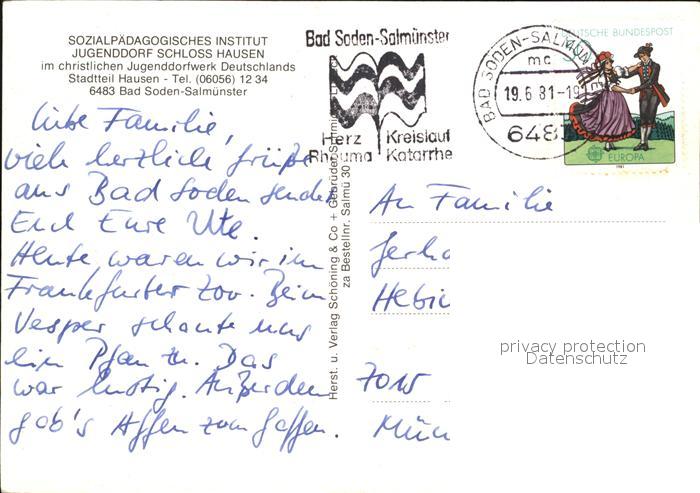 SOZIALPÄDAGOGISCHES INSTITUT
JUGENDDORF SCHLOSS HAUSEN
im christlichen Jugenddorfwerk Deutschlands
Stadtteil Hausen - Tel. (06056) 12 34
6483 Bad Soden-Salmünster
Liebe Familie,
viele herzliche Grüße
aus Bad Soden sendet
Euch Eure Ute.
Heute waren wir im
Frankfurter Zoo. Beim
Vesper schaute uns
ein Pfau zu. Das
war lustig. Außerdem
gab's Affen zum Gaffen.
Herst. u. Verlag Schöning & Co + Gebrüder Schmidt
zu Bestellnr. Salmü 30
Bad Soden-Salmünster
Herz Kreislauf
Rheuma Katarrhe
BAD SODEN-SALMÜNS
mc
19.6.81-19
648
DEUTSCHE BUNDESPOST
EUROPA
1981
An Familie
Gerha
Hebic
7015
Mün
privacy protection
Datenschutz